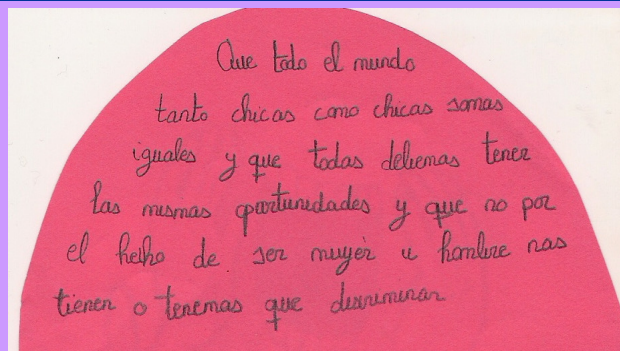 Que todo el mundo
tanto chicas como chicas somos
iguales y que todas debemos tener
las mismas oportunidades y que no por
el hecho de ser mujer u hombre nos
tienen o tenemos que discriminar